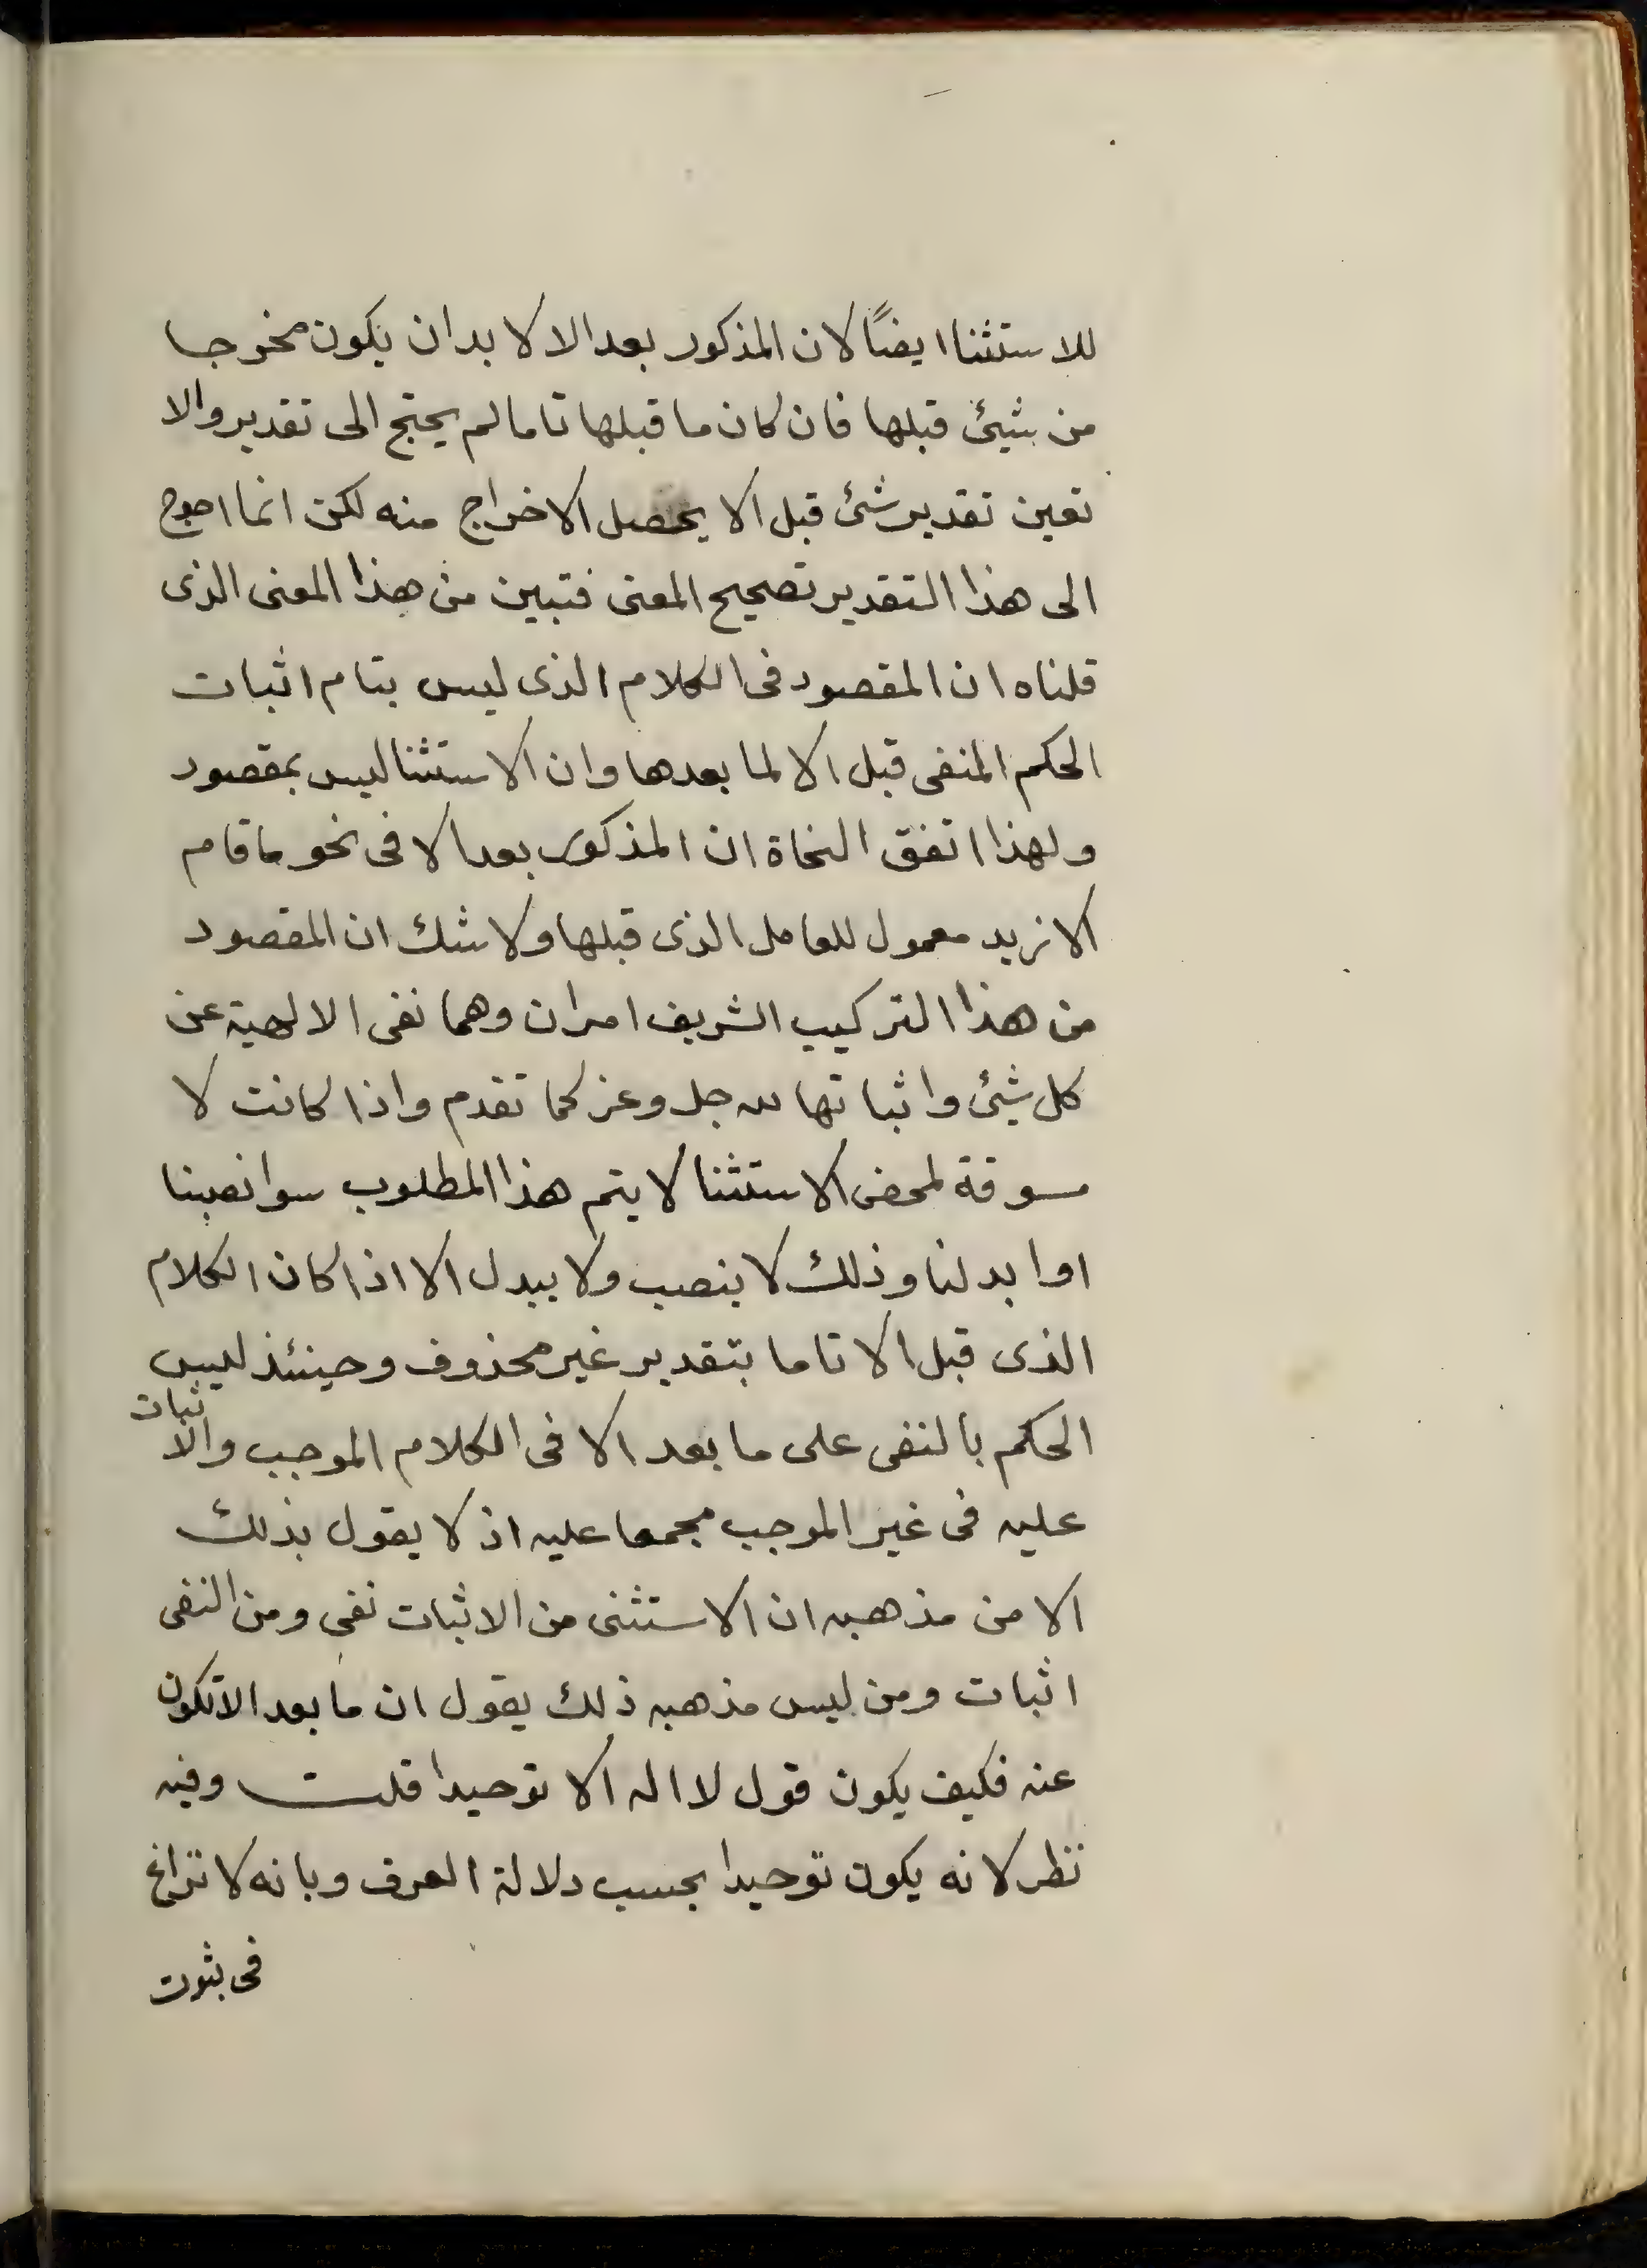 للاستثنا ايضًا لان المذكور بعد الا لا بد ان يكون مخرجا
من شيئ قبلها فان كان ما قبلها تاما لم يحتج الى تقدير والا
تعين تقدير شئ قبل الا يحصل الاخراج منه لكن انما احوج
الى هذا التقدير تصحيح المعنى فتبين من هذا المعنى الذى
قلناه ان المقصود فى الكلام الذى ليس بتام اثبات
الحكم المنفى قبل الا لما بعدها وان الاستثنا ليس بمقصود
ولهذا اتفق النحاة ان المذكور بعد الا فى نحو ما قام
الا زيد معمول للعامل الذى قبلها ولا شك ان المقصود
من هذا التركيب الشريف امران وهما نفى الالهية عن
كل شيئ واثباتها لله جل وعز كما تقدم واذا كانت لا
مسوقة لمحض الاستثنا لا يتم هذا المطلوب سوا نصبنا
او ابدلنا وذلك لا ينصب ولا يبدل الا اذا كان الكلام
الذى قبل الا تاما بتقدير غير محذوف وحينئذ ليس
الحكم بالنفى على ما بعد الا فى الكلام الموجب والاثبات
عليه فى غير الموجب مجمعا عليه اذ لا يقول بذلك
الا من مذهبه ان الاستثنى من الاثبات نفى ومن النفى
اثبات ومن ليس مذهبه ذلك يقول ان ما بعد الا تكون
عنه فكيف يكون قول لا اله الا توحيدا قلت وفيه
نظر لانه يكون توحيدا بحسب دلالة العرف وبانه لا نزاع
فى ثبوت